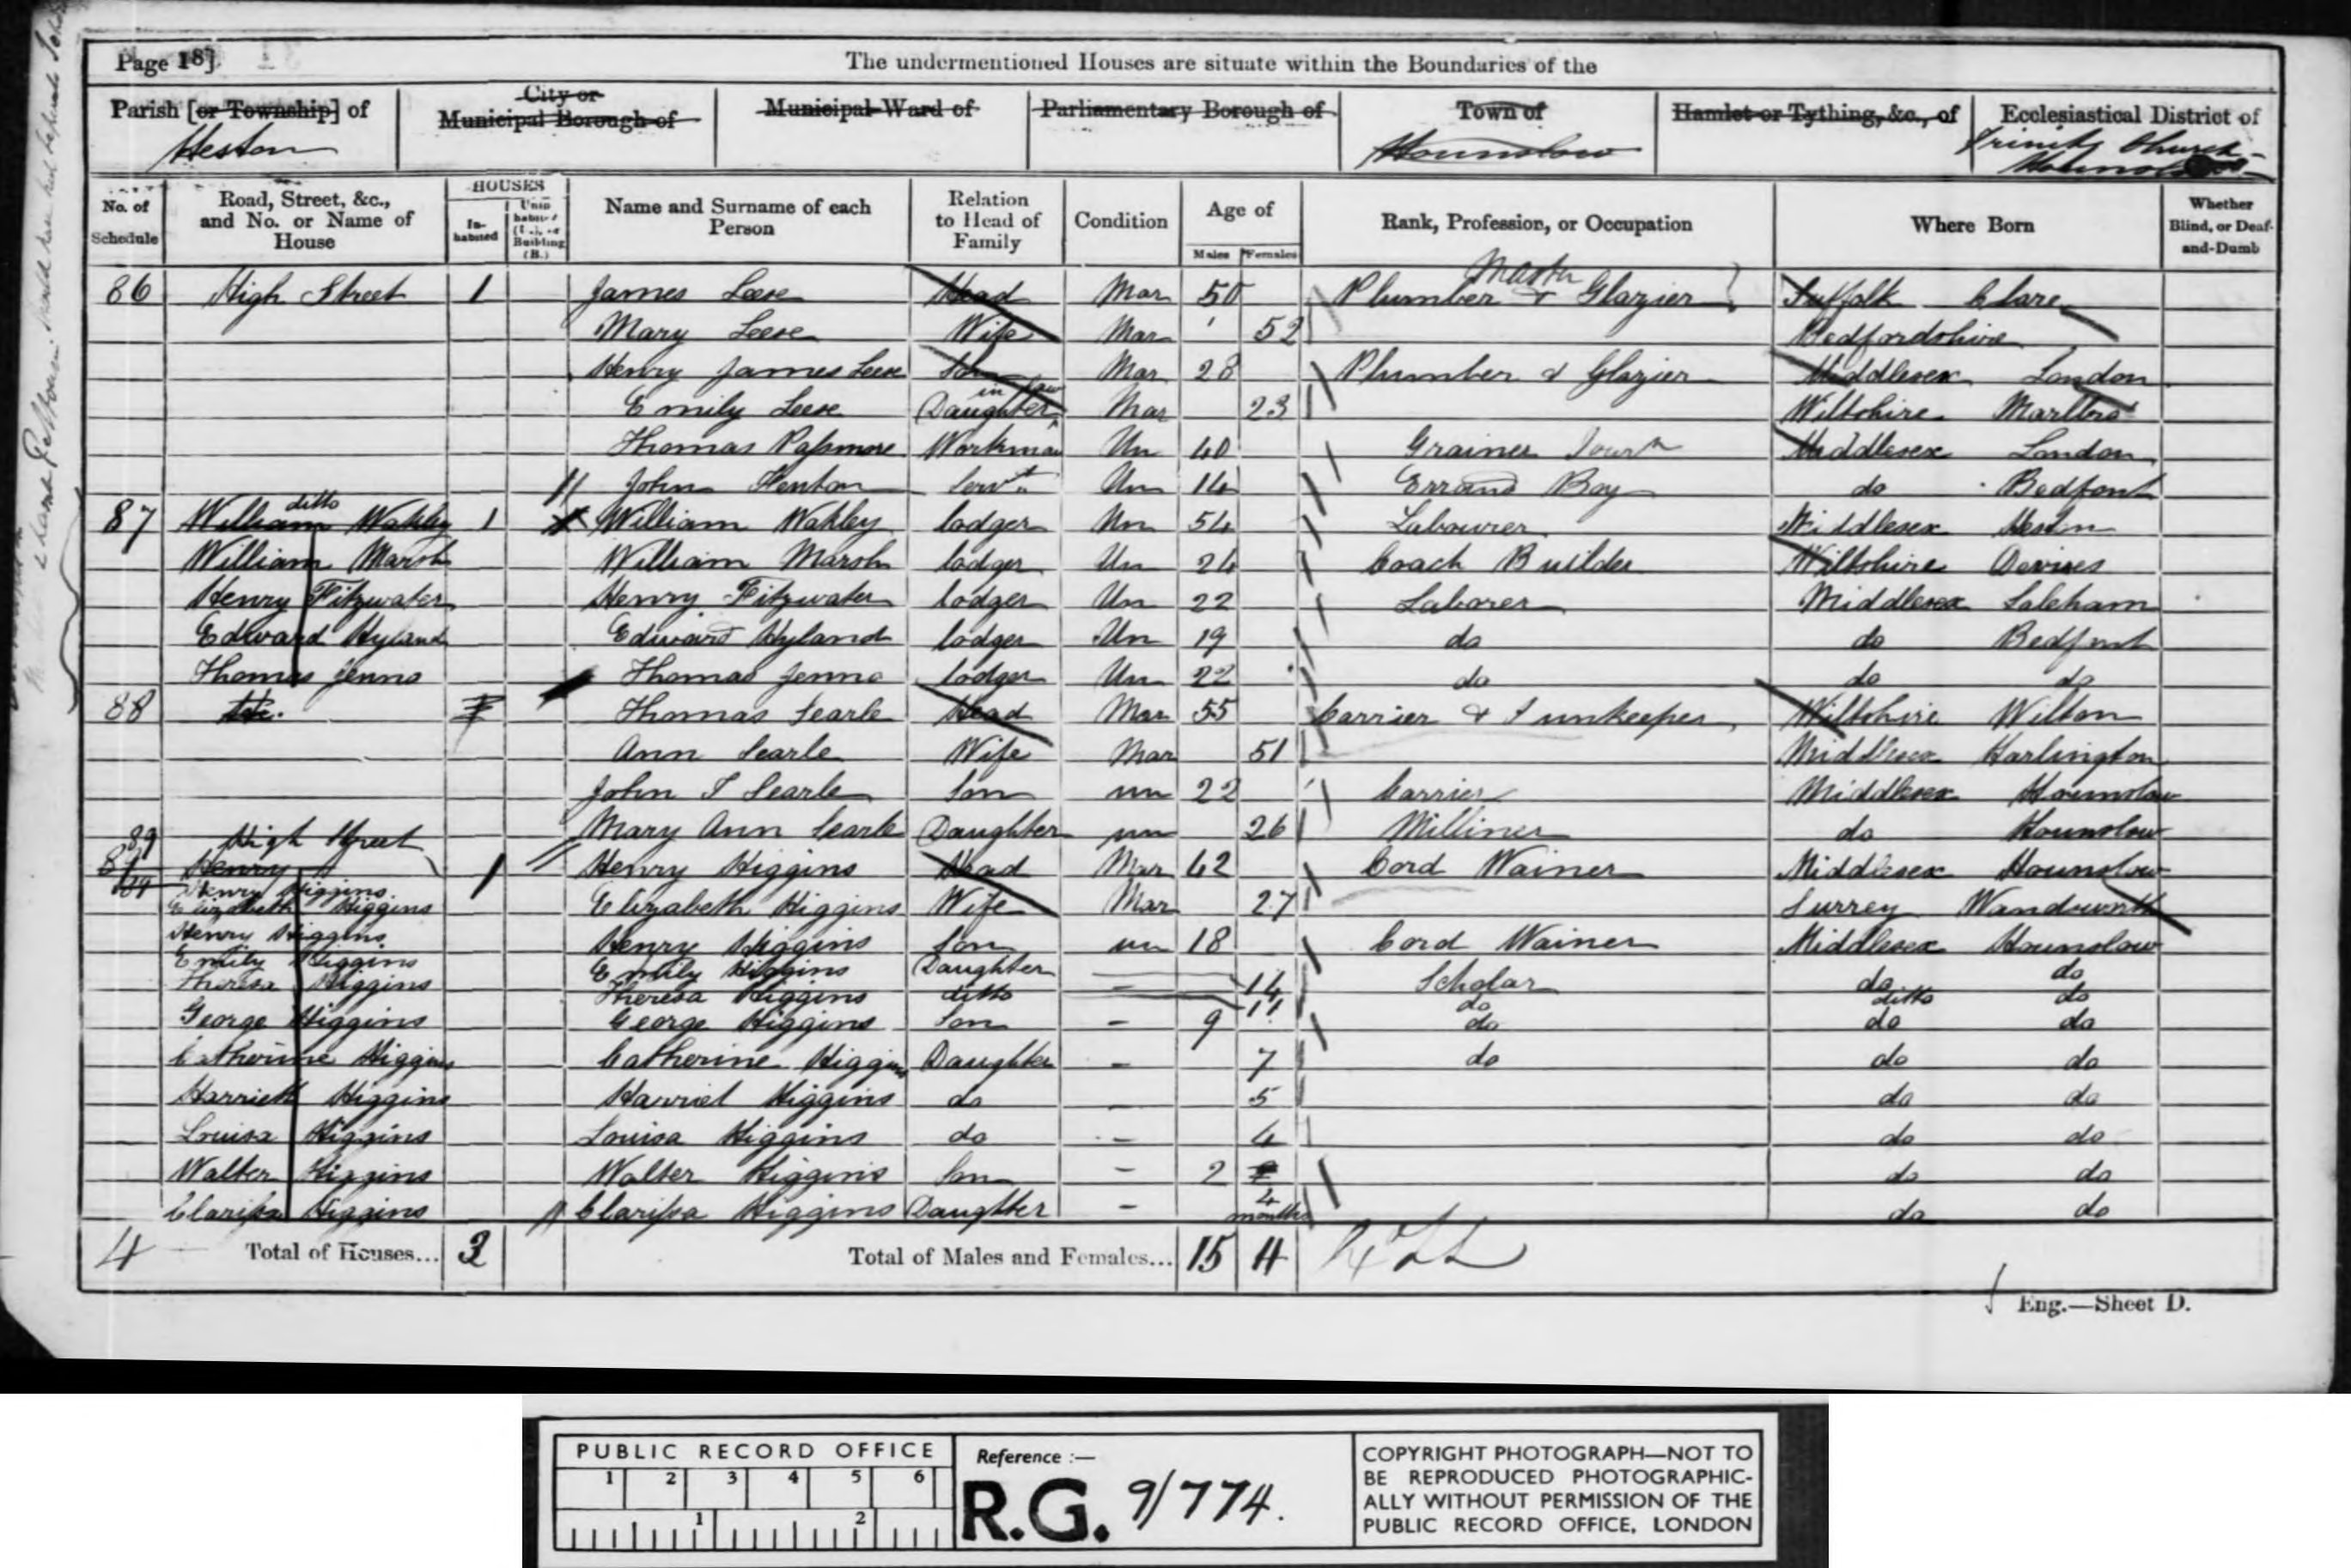 Page 18]
The undermentioned Houses are situate within the Boundaries of the
Parish [or Township] of
Heston
City or
Municipal Borough of
Municipal Ward of
Parliamentary Borough of
Town of
Hounslow
Hamlet or Tything, &c., of
Ecclesiastical District of
Trinity Church
Hounslow
No. of Schedule
Road, Street, &c., and No. or Name of House
HOUSES
In-habited
Building (B.)
Name and Surname of each Person
Relation to Head of Family
Condition
Age of
Males Females
Rank, Profession, or Occupation
Where Born
Whether Blind, or Deaf-and-Dumb
86 High Street 1 James Leese Head Mar 50 Plumber & Glazier Master Suffolk Clare
Mary Leese Wife Mar 52 Bedfordshire
Henry James Leese Son Mar 28 Plumber & Glazier Middlesex London
Emily Leese Daughter in law Mar 23 Wiltshire Marlbro
Thomas Passmore Workman Un 40 Grainer Journ Middlesex London
John Henton Servt Un 14 Errand Boy do Bedfont
87 ditto William Wakley 1 William Wakley lodger Un 54 Labourer Middlesex Heston
William Marsh William Marsh lodger Un 24 Coach Builder Wiltshire Devises
Henry Fitzwater Henry Fitzwater lodger Un 22 Laborer Middlesex Laleham
Edward Hyland Edward Hyland lodger Un 19 do do Bedfont
Thomas Jenns Thomas Jenns lodger Un 22 do do do
88 Thomas Searle Head Mar 55 Carrier & Innkeeper Wiltshire Wilton
Ann Searle Wife Mar 51 Middlesex Harlington
John T Searle Son un 22 Carrier Middlesex Hounslow
Mary Ann Searle Daughter un 26 Milliner do Hounslow
89 High Street
Henry 1 Henry Higgins Head Mar 42 Cord Wainer Middlesex Hounslow
Henry Higgins
Elizabeth Higgins Elizabeth Higgins Wife Mar 27 Surrey Wandsworth
Henry Higgins Henry Higgins Son un 18 Cord Wainer Middlesex Hounslow
Emily Higgins Emily Higgins Daughter 14 Scholar do do
Theresa Higgins Theresa Higgins ditto 11 do ditto do
George Higgins George Higgins Son - 9 do do do
Catherine Higgins Catherine Higgins Daughter - 7 do do do
Harriett Higgins Harriet Higgins do - 5 do do
Louisa Higgins Louisa Higgins do - 4 do do
Walter Higgins Walter Higgins Son - 2 do do
Clarissa Higgins Clarissa Higgins Daughter - 4 months do do
4 Total of Houses... 3 Total of Males and Females... 15 11
Eng.—Sheet D.
PUBLIC RECORD OFFICE
1 2 3 4 5 6
1 2
Reference :—
R.G. 9/774.
COPYRIGHT PHOTOGRAPH—NOT TO
BE REPRODUCED PHOTOGRAPHIC-
ALLY WITHOUT PERMISSION OF THE
PUBLIC RECORD OFFICE, LONDON